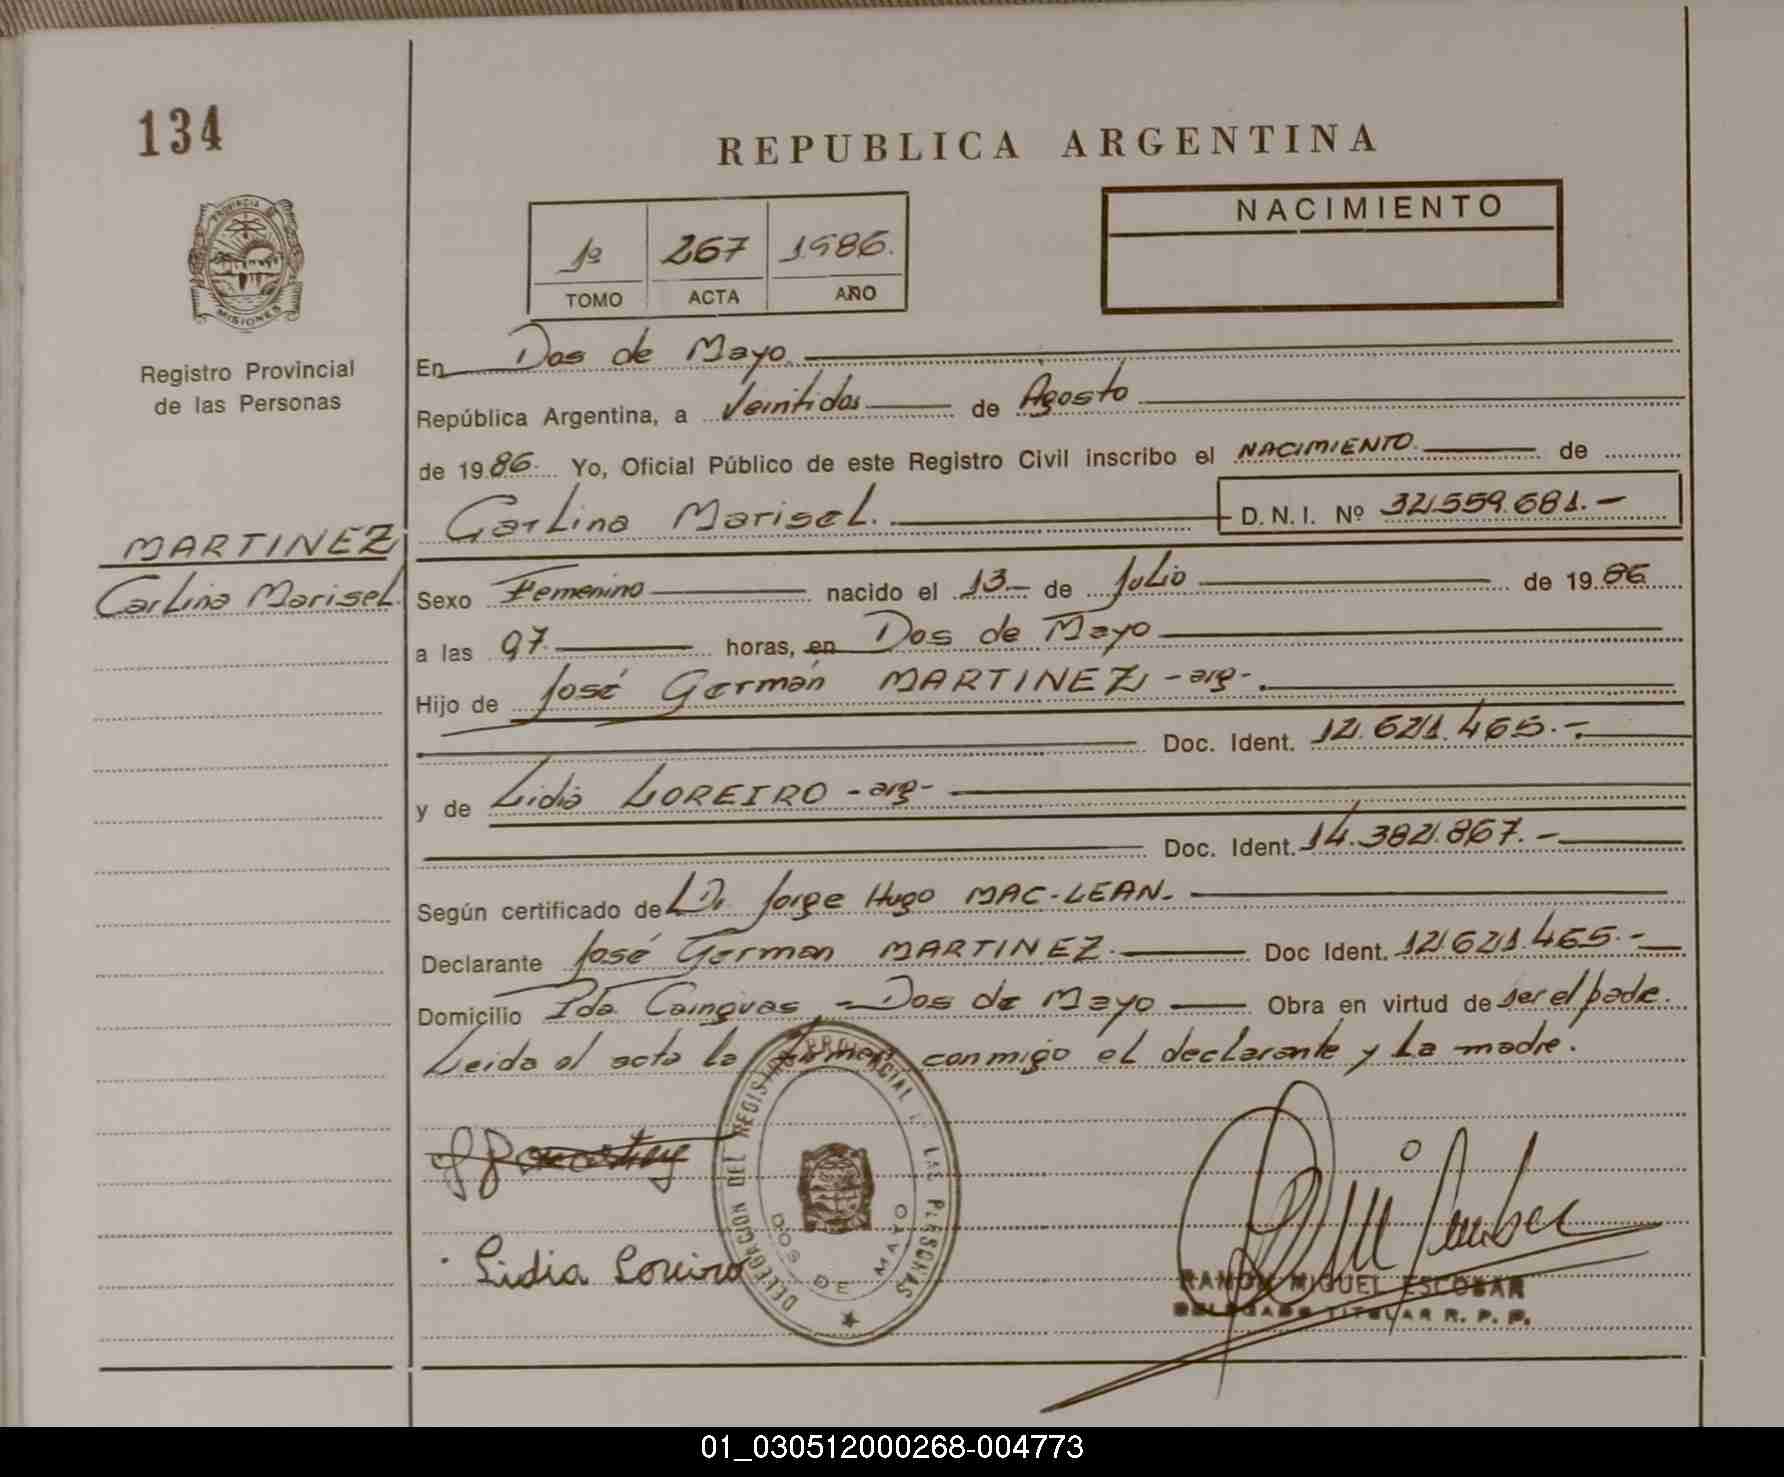 134
REPUBLICA ARGENTINA
PROVINCIA DE
MISIONES
Registro Provincial
de las Personas
1º 267 1986.
TOMO ACTA AÑO
NACIMIENTO
En Dos de Mayo
República Argentina, a Veintidos de Agosto
de 1986. Yo, Oficial Público de este Registro Civil inscribo el NACIMIENTO. de
Carlina Marisel. D.N.I. Nº 32.559.681.-
MARTINEZ
Carlina Marisel.
Sexo Femenino nacido el 13.- de Julio de 1986
a las 07. horas, en Dos de Mayo
Hijo de José Germán MARTINEZ -arg-.
Doc. Ident. 12.621.465.-.
y de Lidia LOREIRO -arg-
Doc. Ident. 14.382.867.-
Según certificado de Dr. Jorge Hugo MAC-LEAN.
Declarante José German MARTINEZ. Doc Ident. 12.621.465.-
Domicilio Pda. Cainguas - Dos de Mayo Obra en virtud de ser el padre.
Leida el acta la firman conmigo el declarante y la madre.
DELEGACION DEL REGISTRO PROVINCIAL DE LAS PERSONAS
DOS DE MAYO
Lidia Loreiro
RAMON MIGUEL ESCOBAR
DELEGADO TITULAR R. P. P.
01_030512000268-004773